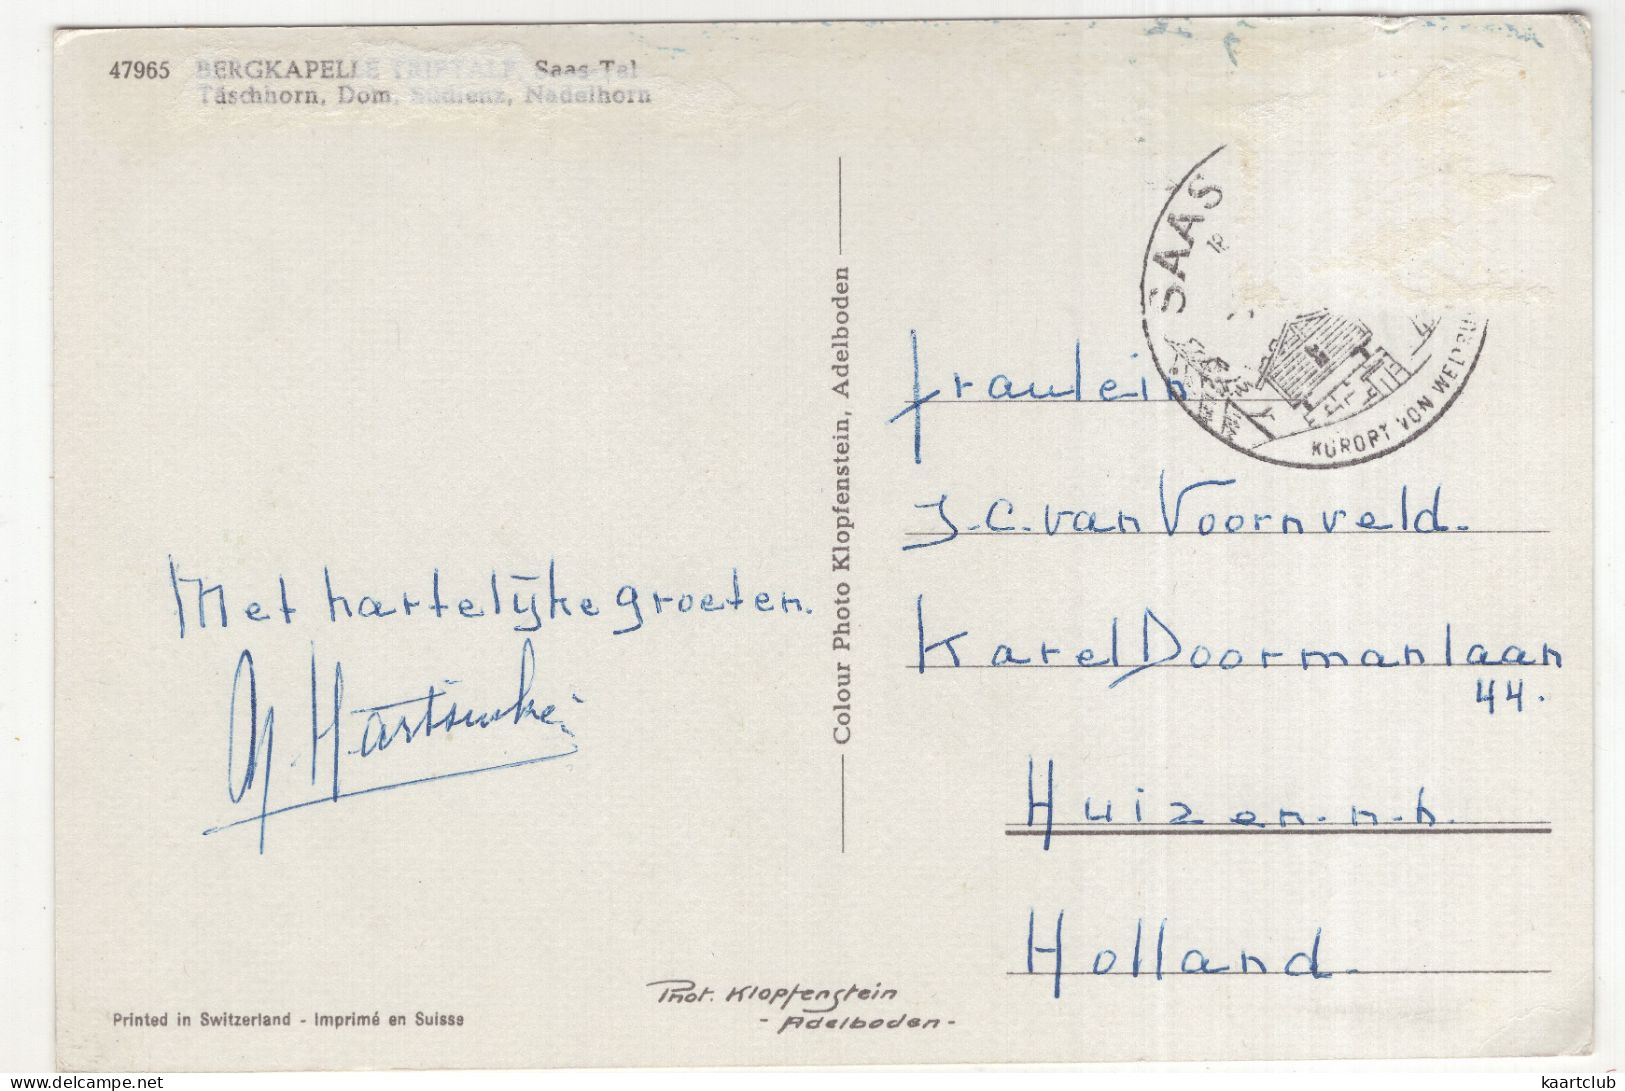 47965 BERGKAPELLE TRIFTALP, Saas-Tal
Täschhorn, Dom, Südlenz, Nadelhorn
SAAS
KURORT VON WELTRU
Colour Photo Klopfenstein, Adelboden
Met hartelijke groeten.
fraulein
J.C. van Voornveld.
Karel Doormanlaan
44.
Huizen. n.h.
Holland.
Phot. Klopfenstein
- Adelboden -
Printed in Switzerland - Imprimé en Suisse
kaartclub